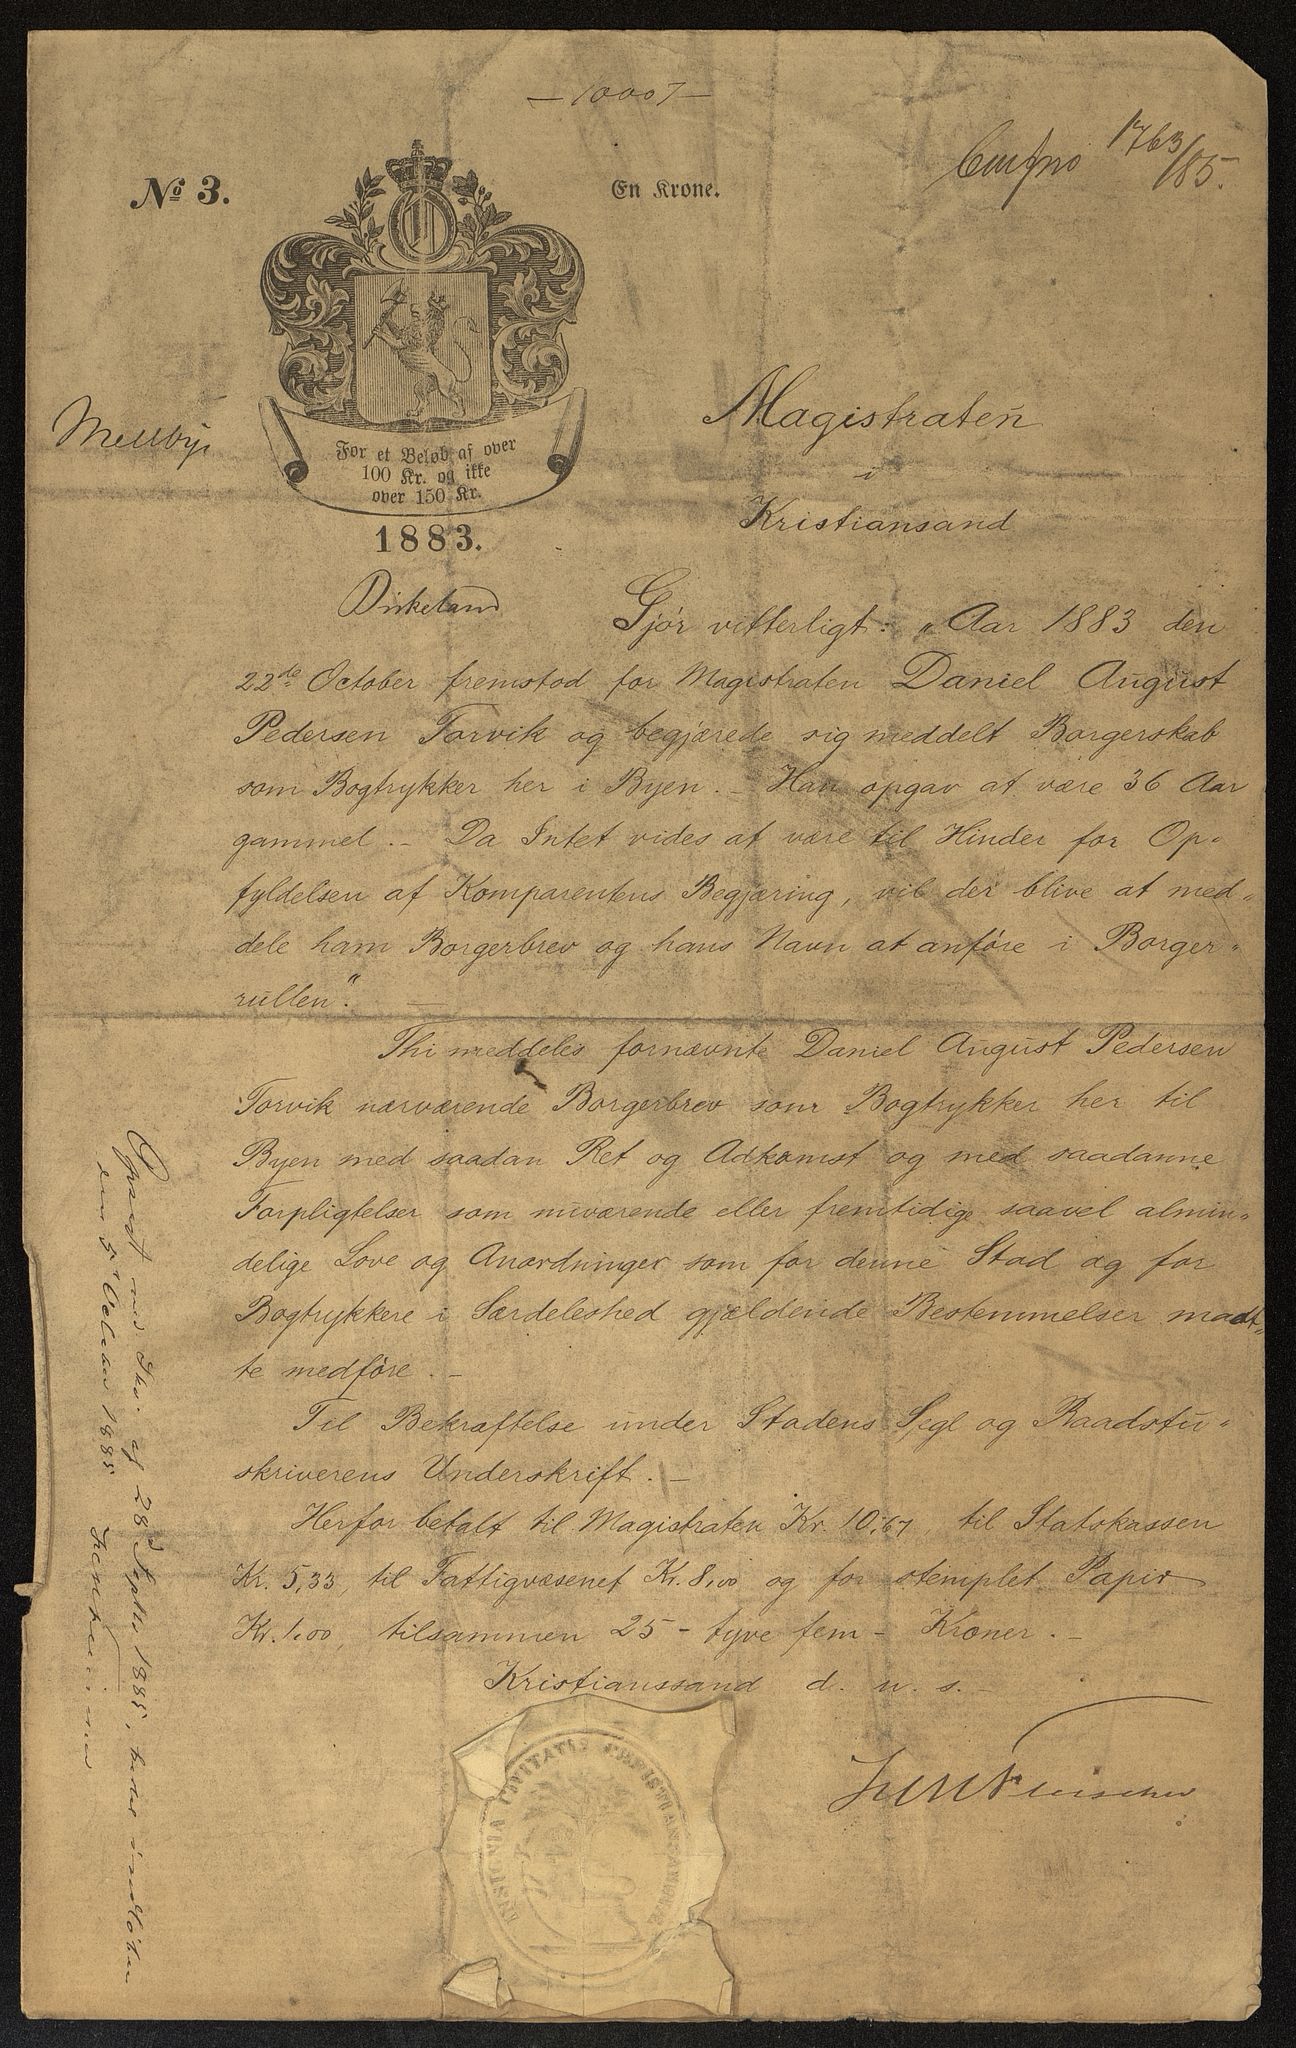 — 10007 —
1763/85.
No 3.
En Krone.
For et Beløb af over
100 Kr. og ikke
over 150 Kr.
1883.
Magistraten
i
Kristiansand
Gjør vitterligt: „Aar 1883 den
22de October fremstod for Magistraten Daniel August
Pedersen Torvik og begjærede sig meddelt Borgerskab
som Bogtrykker her i Byen. – Han opgav at være 36 Aar
gammel. – Da Intet vides at være til Hinder for Op-
fyldelsen af Komparentens Begjæring, vil der blive at med-
dele ham Borgerbrev og hans Navn at anføre i Borger-
rullen". —
Thi meddeles fornævnte Daniel August Pedersen
Torvik nærværende Borgerbrev som Bogtrykker her til
Byen med saadan Ret og Adkomst og med saadanne
Forpligtelser som nuværende eller fremtidige saavel almin-
delige Love og Anordninger som for denne Stad og for
Bogtrykkere i Særdeleshed gjældende Bestemmelser maat-
te medføre. –
Til Bekræftelse under Stadens Segl og Raadstu-
skriverens Underskrift. –
Herfor betalt til Magistraten Kr. 10,67, til Statskassen
Kr. 5,33, til Fattigvæsenet Kr. 8,00 og for stemplet Papir
Kr. 1,00, tilsammen 25 – tyve fem – Kroner. –
Kristianssand d. u. s. –
INSIGNIA CIVITATIS CHRISTIANSANDIÆ
af 28d Septbr 1885,
den 5 1885